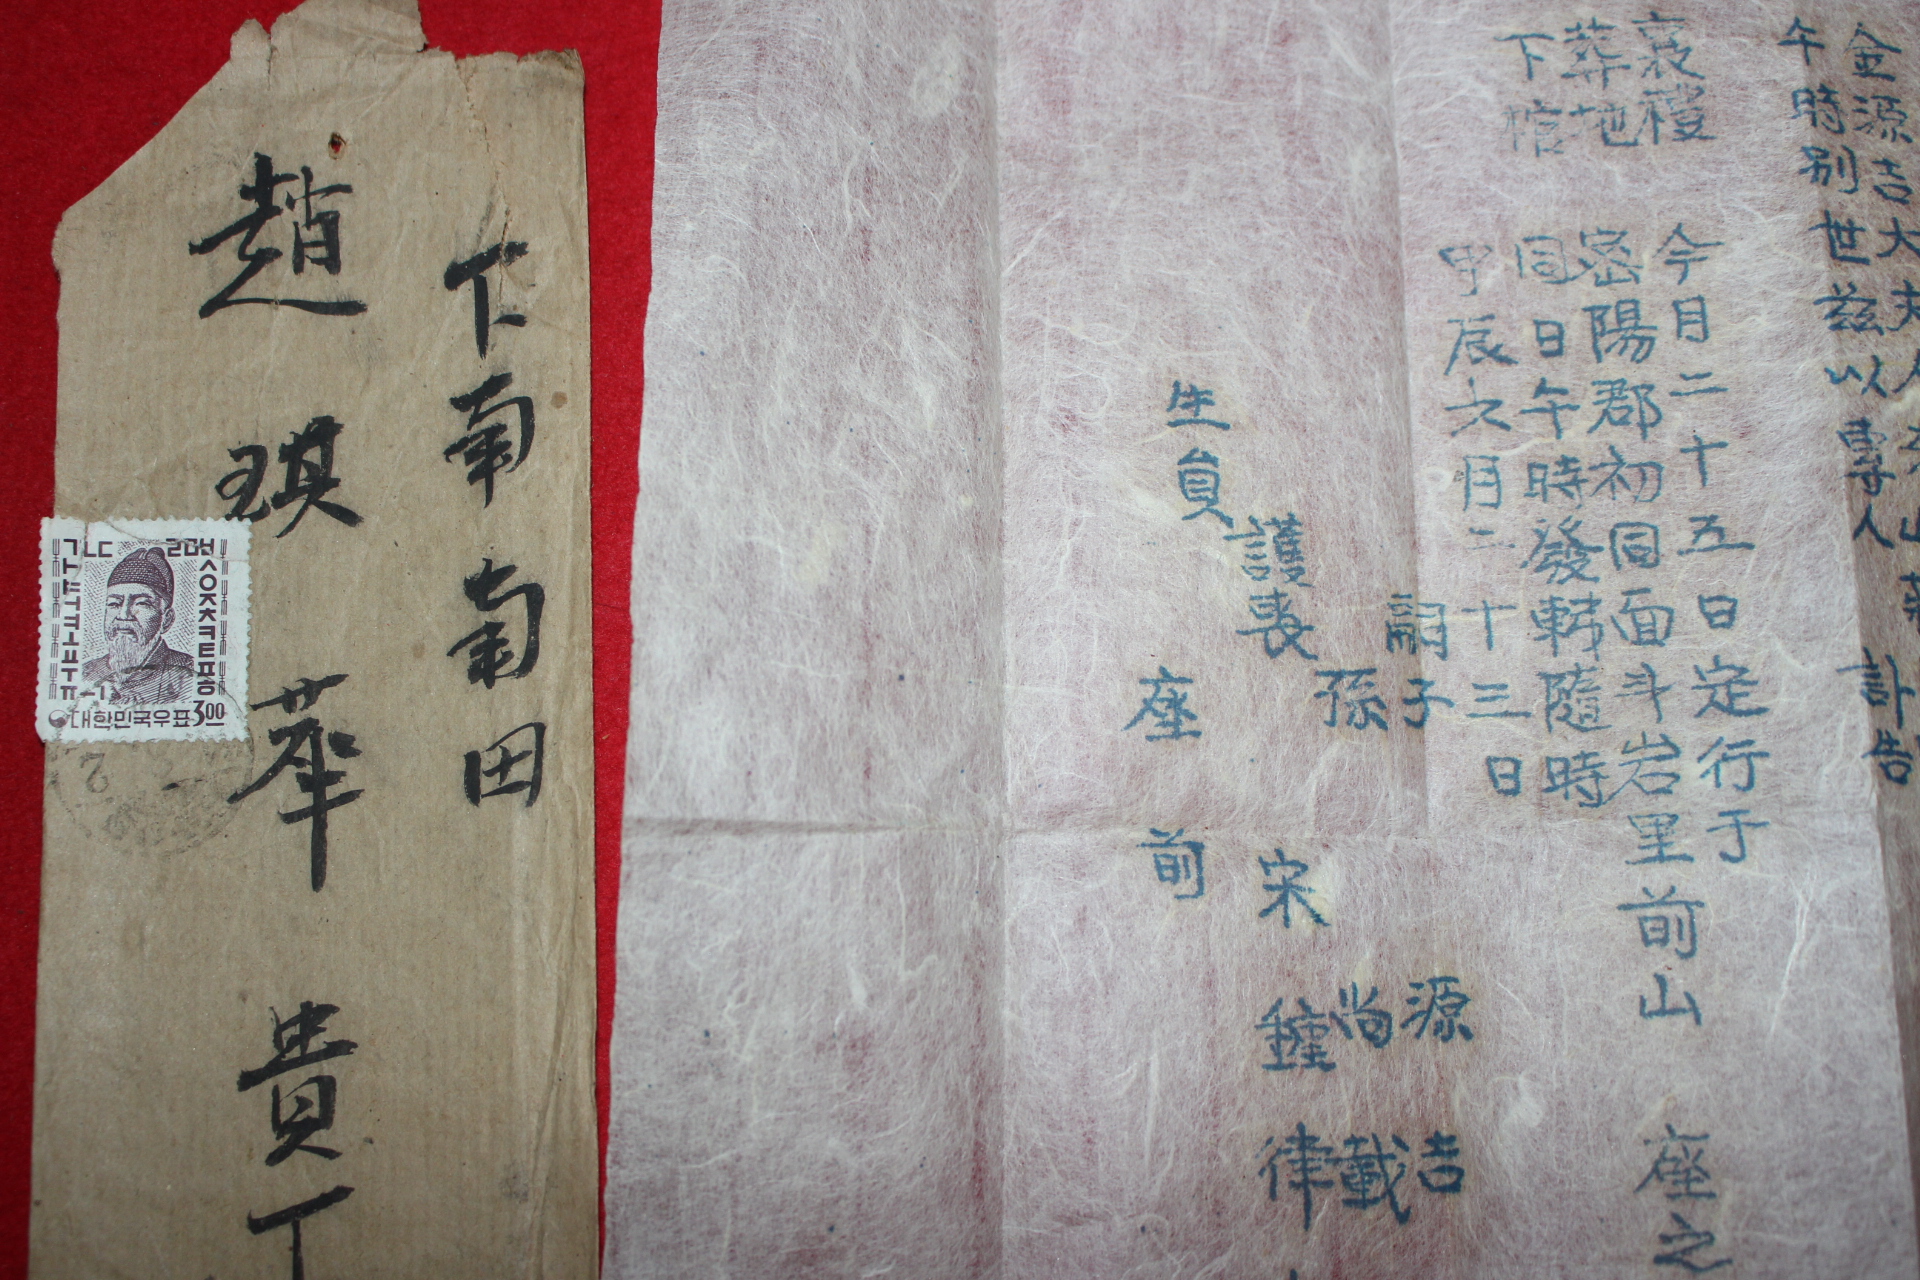 下南南田
趙琪華貴下
ㄱㄴㄷ
ㅅㅇㅈㅊㅋㅌㅍㅎ
대한민국우표300
金源吉大夫人
午時別世玆以專人 訃告
襄禮 今月二十五日定行于
葬地 密陽郡初同面斗岩里前山 座之
下棺 同日午時發靷隨時
甲辰六月二十三日
嗣子 源吉
孫 尚載
護喪 宋鍾律
生員 座前